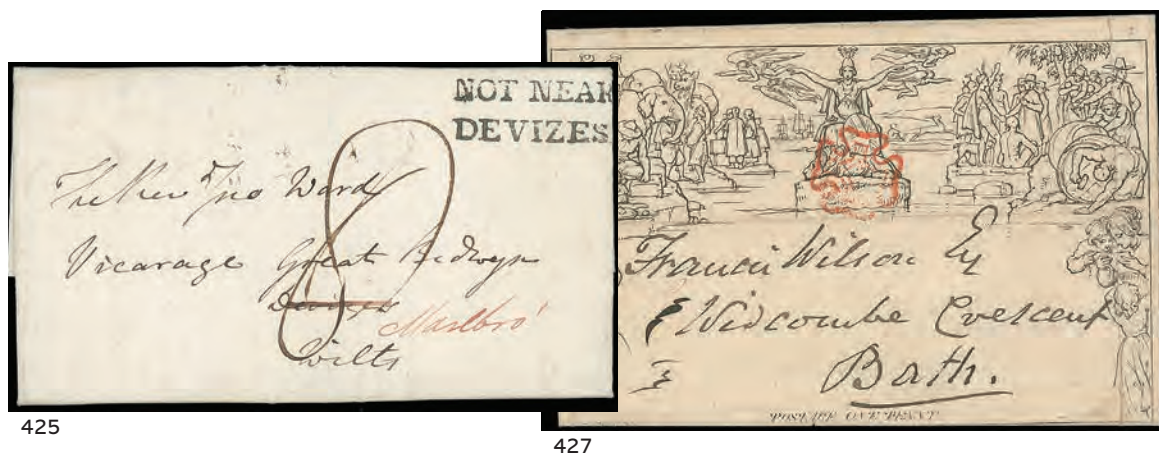 NOT NEAR
DEVIZES
The Revd Jno Ward
Vicarage Great Bedwyn
Devizes
Marlbro'
Wilts
8
425
Francis Wilson Esq
Widcombe Crescent
Bath.
POSTAGE ONE PENNY
427